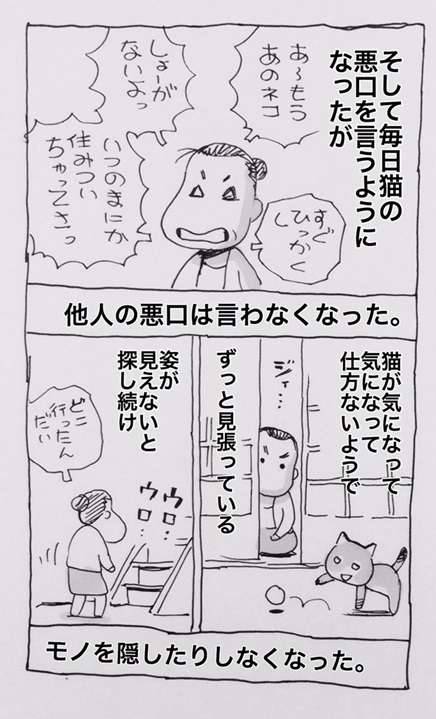 そして毎日猫の
悪口を言うように
なったが
あ〜もう
あのネコ
しょーが
ないよっ
いつのまにか
住みつい
ちゃってさっ
すぐ
ひっかく
し
他人の悪口は言わなくなった。
猫が気になって
気になって
仕方ないようで
ジィ…
ずっと見張っている
姿が
見えないと
探し続け
どこ
行ったん
だい
ウロ…
ウロ…
モノを隠したりしなくなった。